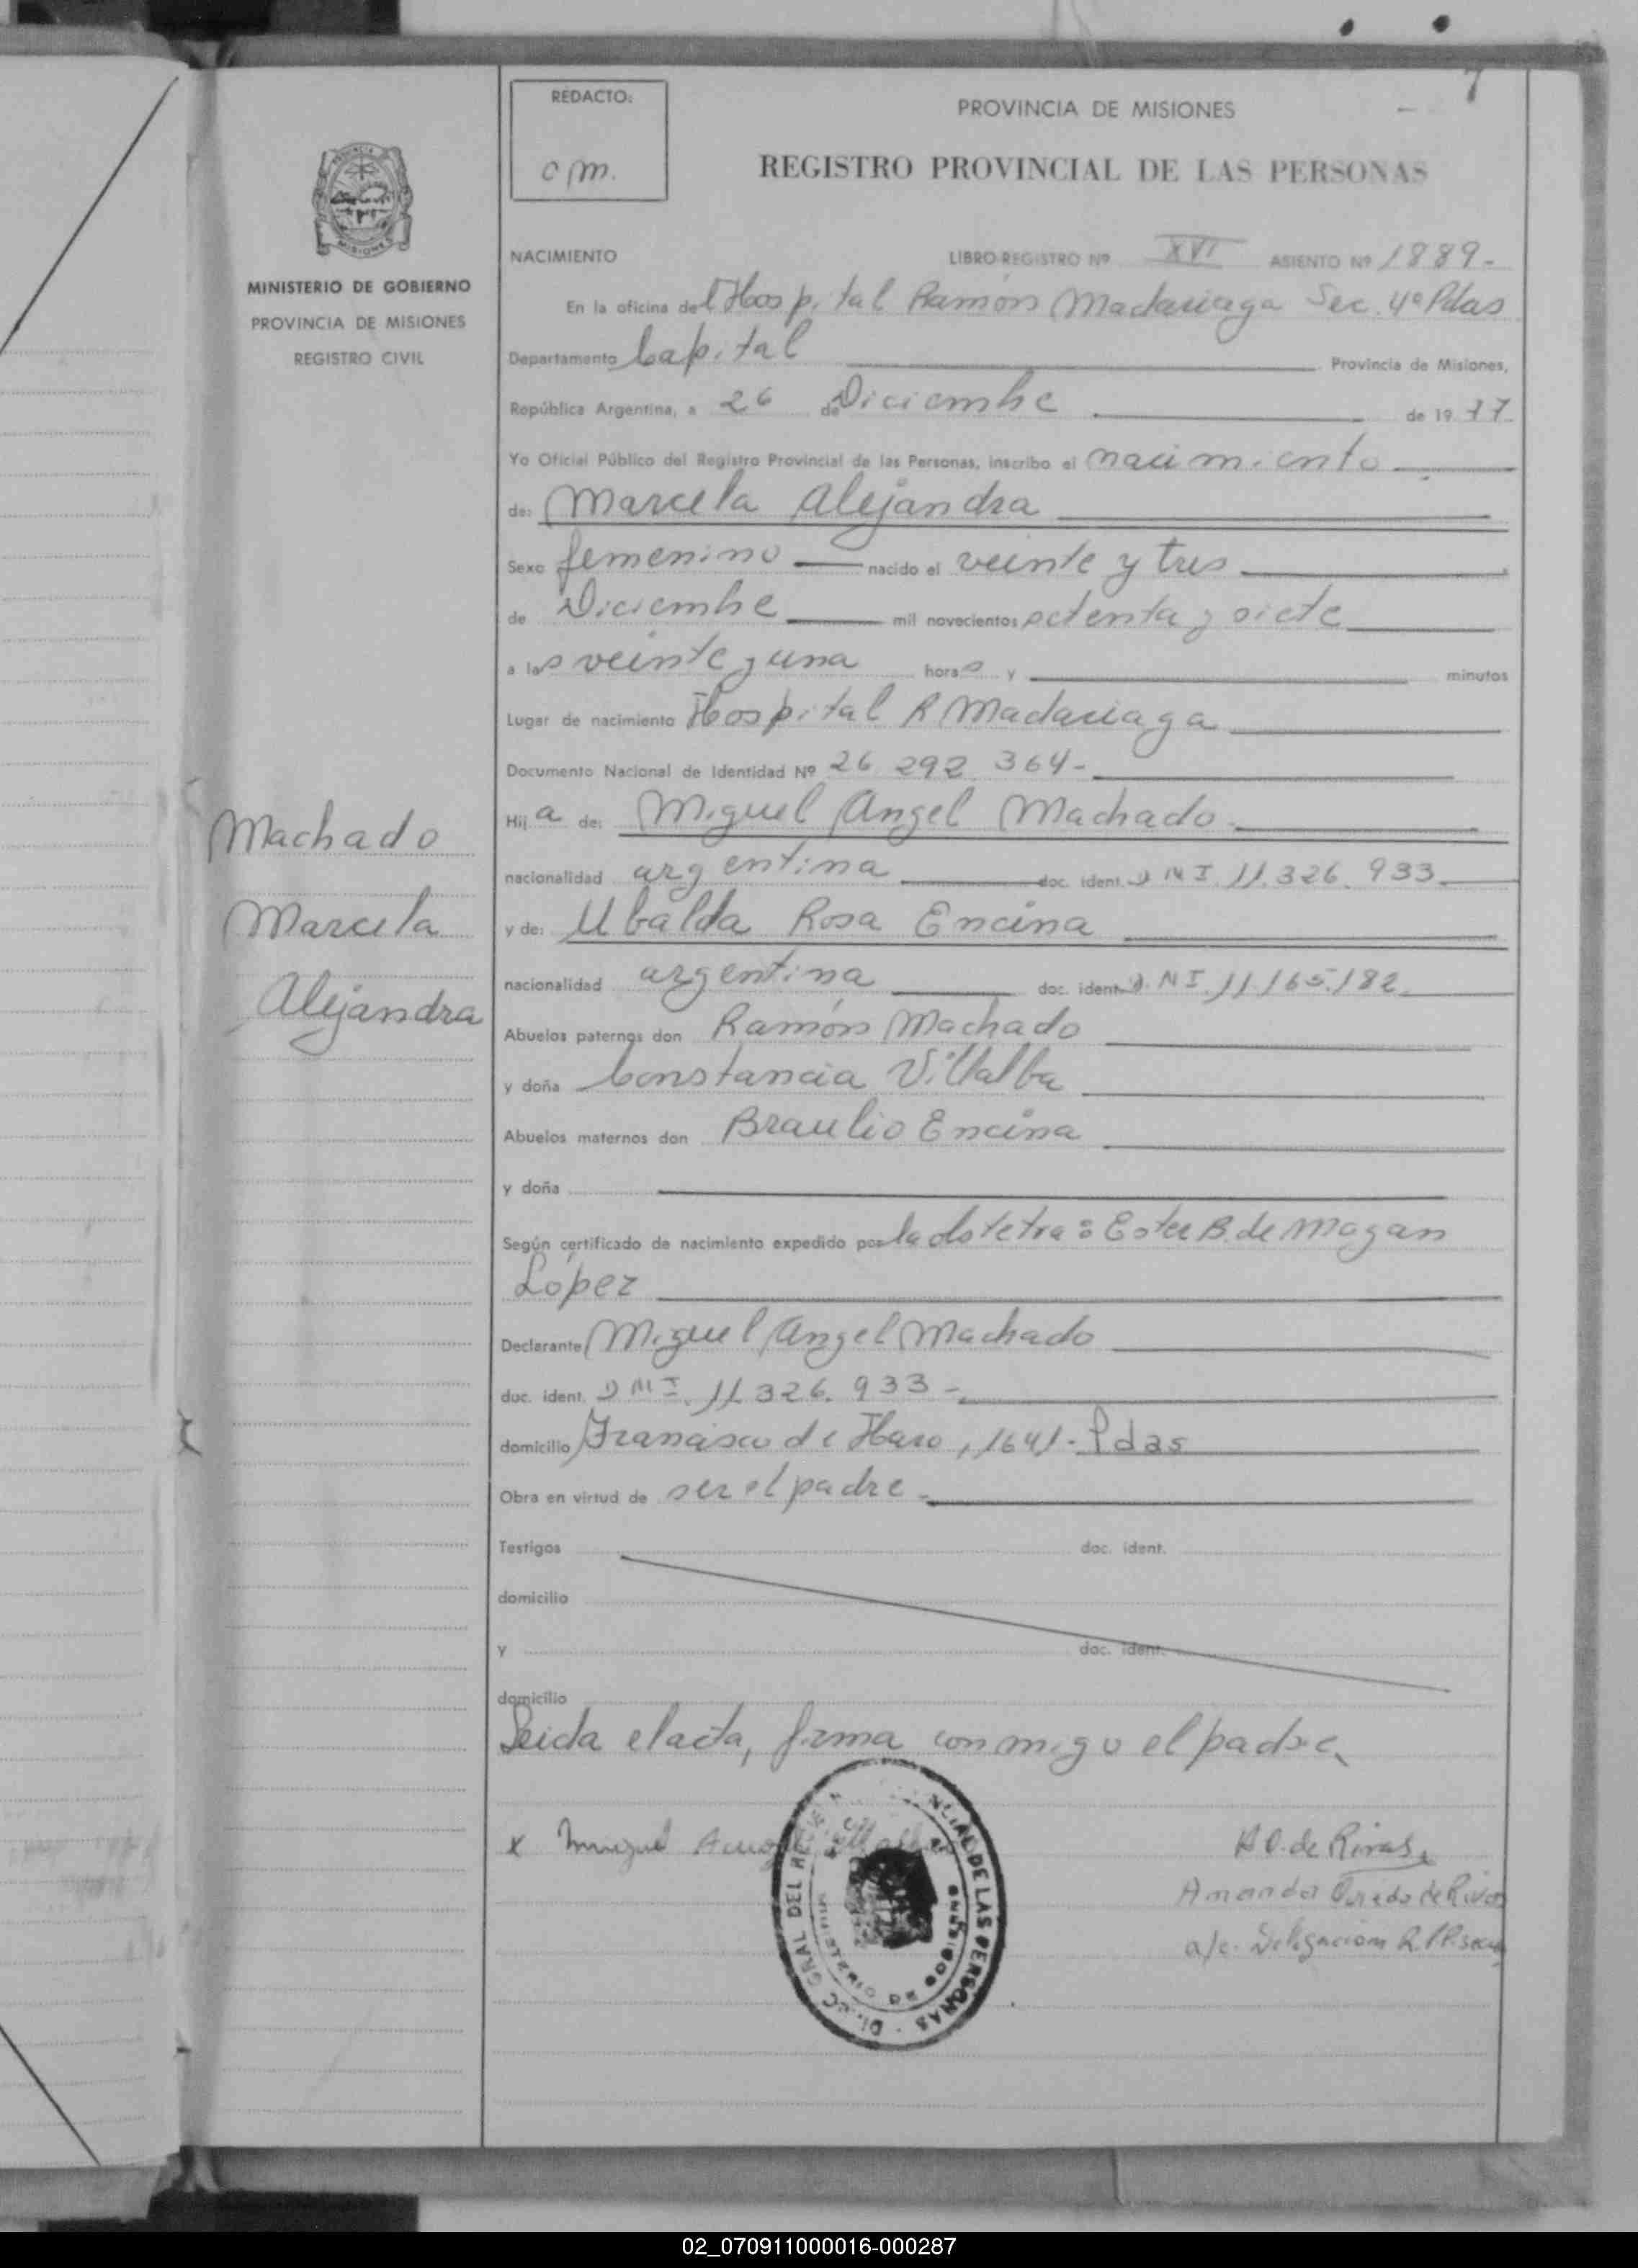 7
REDACTO:
om.
PROVINCIA DE MISIONES
REGISTRO PROVINCIAL DE LAS PERSONAS
MINISTERIO DE GOBIERNO
PROVINCIA DE MISIONES
REGISTRO CIVIL
NACIMIENTO LIBRO-REGISTRO Nº XVI ASIENTO Nº 1889-
En la oficina del Hospital Ramón Madariaga Sec. 4ª Pdas
Departamento Capital Provincia de Misiones,
República Argentina, a 26 de Diciembre de 1977
Yo Oficial Público del Registro Provincial de las Personas, inscribo el nacimiento
de: Marcela Alejandra
Sexo femenino nacido el veinte y tres
de Diciembre mil novecientos setenta y siete
a las veinte y una horas y minutos
Lugar de nacimiento Hospital R Madariaga
Documento Nacional de Identidad Nº 26 292 364-
Machado
Marcela
Alejandra
Hija de: Miguel Angel Machado
nacionalidad argentina doc. ident. D N I. 11.326.933
y de: Ubalda Rosa Encina
nacionalidad argentina doc. ident. D. N I. 11.165.182
Abuelos paternos don Ramón Machado
y doña Constancia Villalba
Abuelos maternos don Braulio Encina
y doña
Según certificado de nacimiento expedido por la obstetra: Ester B. de Magan
López
Declarante Miguel Angel Machado
doc. ident. D N I. 11.326.933-
domicilio Francisco de Haro, 1641- Pdas
Obra en virtud de ser el padre
Testigos doc. ident.
domicilio
y doc. ident.
domicilio
Leida el acta, firma conmigo el padre
x Miguel
DE LAS PERSONAS
A O. de Rivas
Amanda de Rivas
a/c. Delegación
02_070911000016-000287